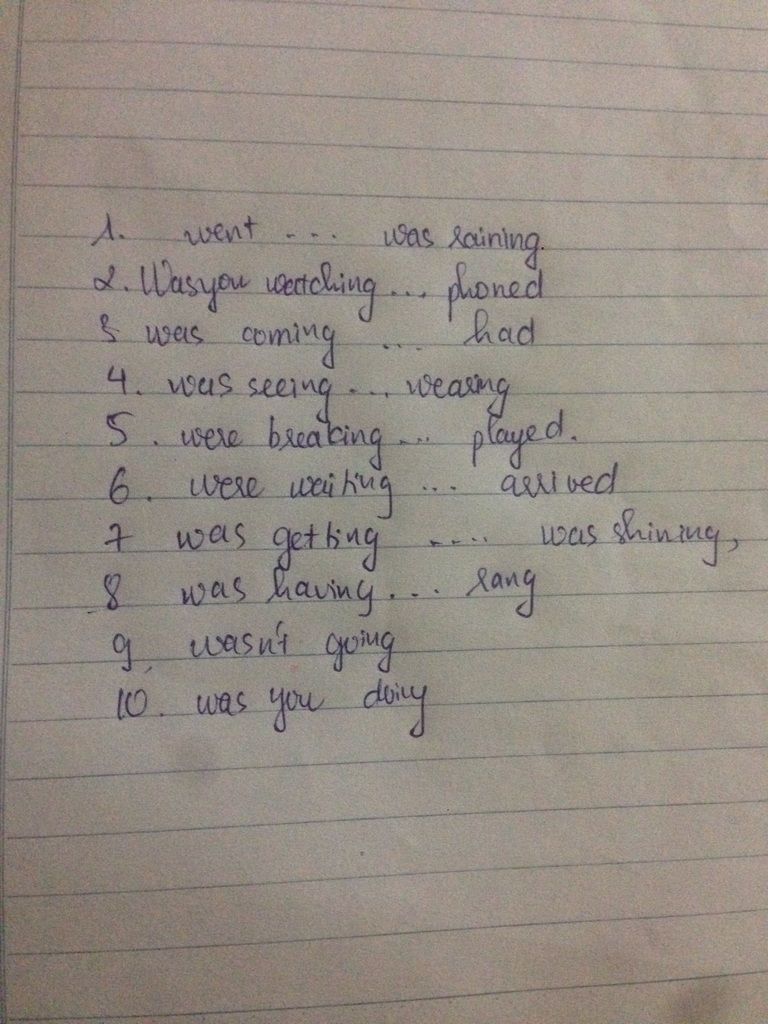 1. went ... was raining.
2. Was you watching ... phoned
3 was coming .... had
4. was seeing ... wearing
5. were breaking ... played.
6. were waiting ... arrived
7 was getting ..... was shining,
8 was having ... rang
9. wasn't going
10. was you doing